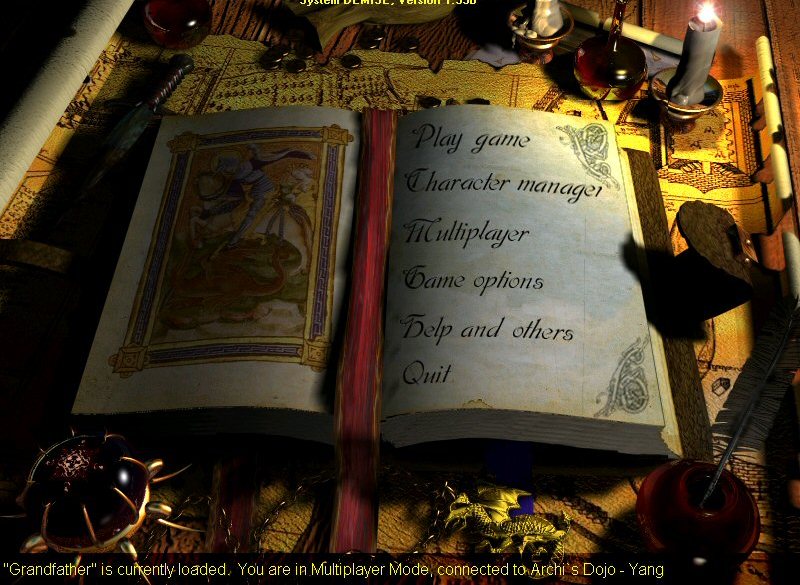 System DEMISE, Version 1.55b
Play game
Character manager
Multiplayer
Game options
Help and others
Quit
"Grandfather" is currently loaded. You are in Multiplayer Mode, connected to Archi`s Dojo - Yang